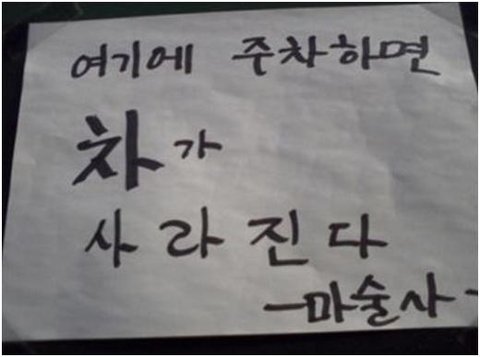 여기에 주차하면
차가
사라진다
-마술사-